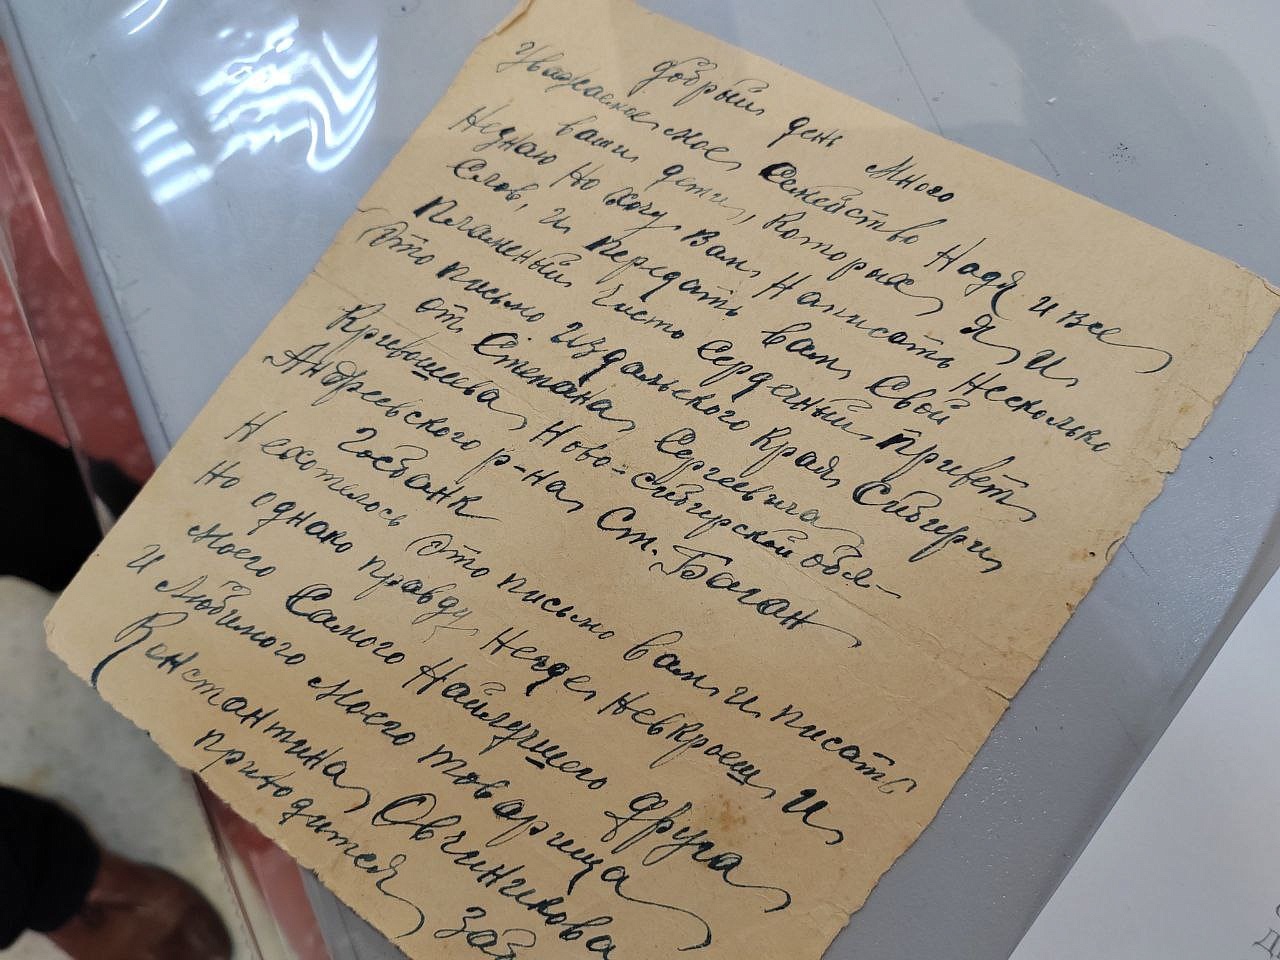 Добрый день Много
Уважаемое мое Семейство Надя и все
ваши дети, Которых Я И
Незнаю Но хочу Вам Написать Несколько
Слов, И Передать вам Свой
Пламенный Чисто Сердечный Привет
Это письмо Издалького Края Сибири
от Степана Сергеевича
Кривошеева, Ново-сибирской обл-
Андреевского р-на, Ст. Баган
Госбанк
Нехотелось Это письмо вам И писать
Но однако правду Негде Невкроеш И
Моего Самого Найлучшего Друга
И Любимого Моего товарища
Константина Овчинникова
приходится заб